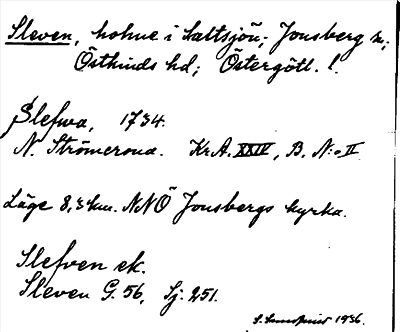 Sleven, holme i Saltsjön; Jonsberg sn;
Östkinds hd; Östergötl. l.
Slefwa, 1734.
N. Strömcrona. Kr.A. XXIV, B. N:o II
Läge 8,3 km. NNÖ Jonsbergs kyrka.
Slefven ek.
Sleven G. 56, Sj. 251.
1936.